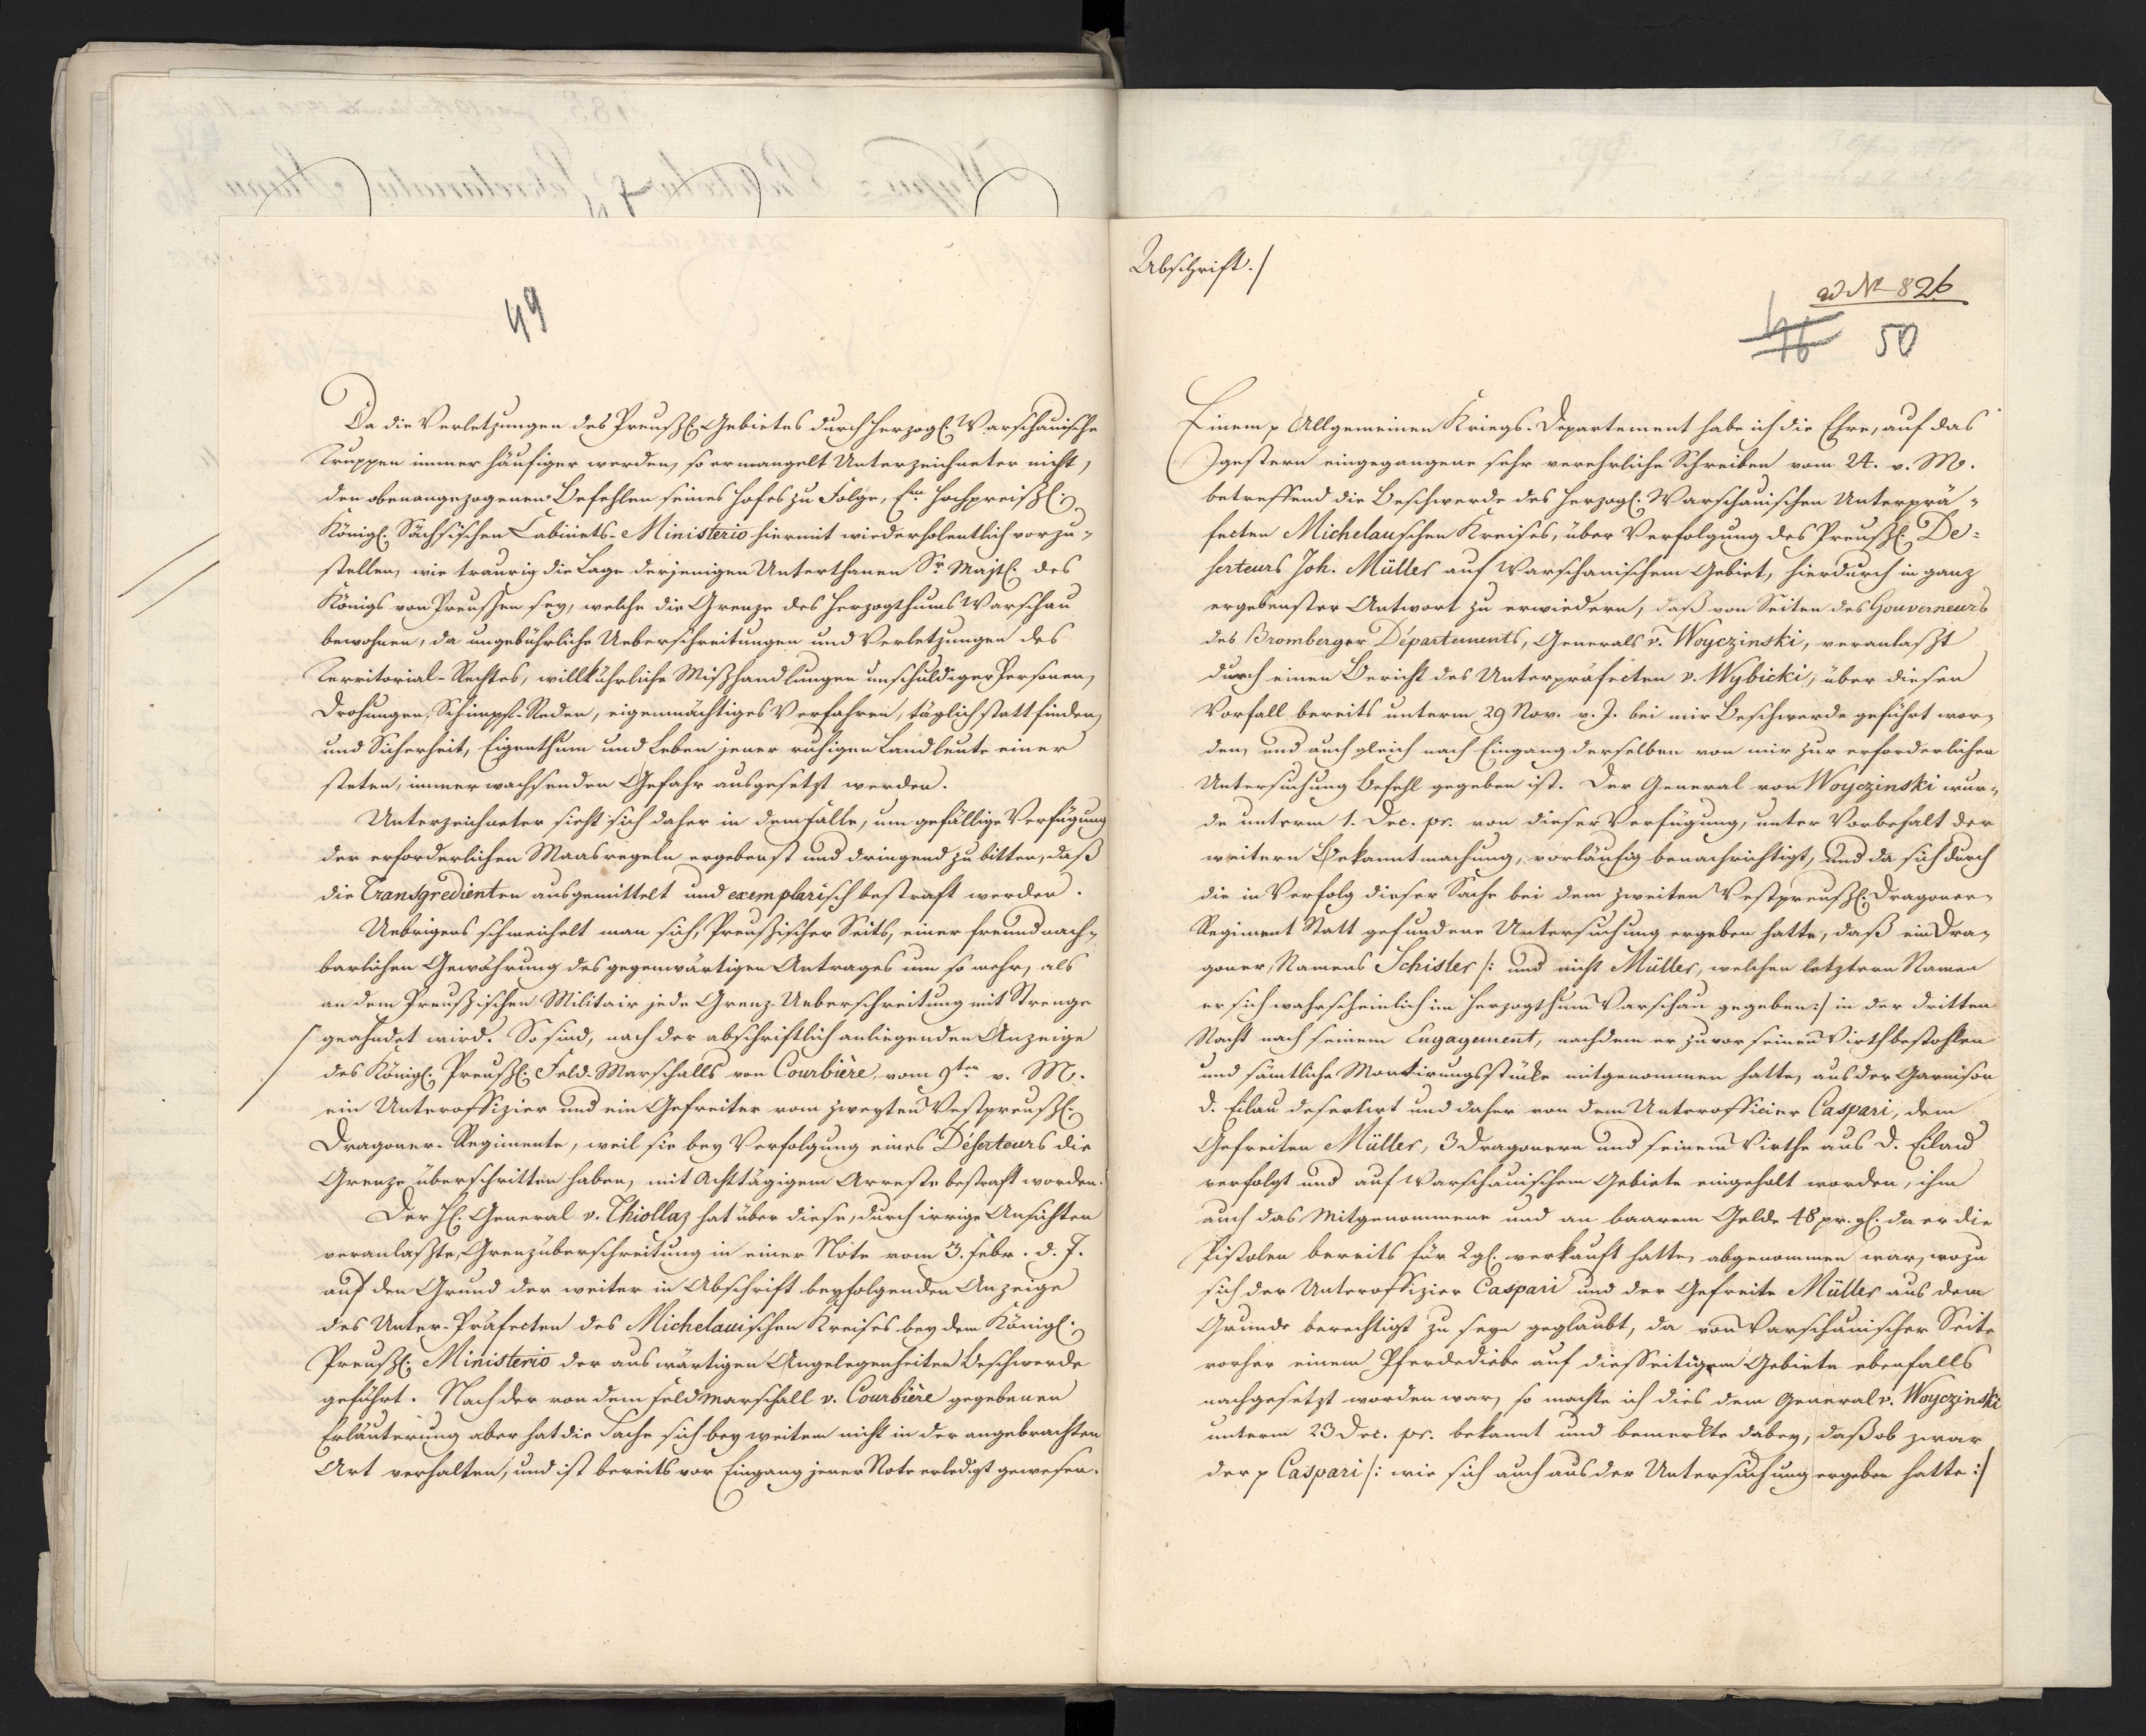 49
Da die Verletzungen des Preußl: Gebietes durch Herzogl: Warschauische
Truppen immer häufiger werden, so ermangelt Unterzeichneter nicht,
den obenangezogenen Befehlen seines Hofes zu Folge, Em Hochpreißl:
Königl: Sächsischen Cabinets-Ministerio hiermit wiederholentlich vorzu-
stellen, wie traurig die Lage derjenigen Unterthanen Sr Majtl: des
Königs von Preussen sey, welche die Grenze des Herzogthums Warschau
bewohnen, da ungebührliche Ueberschreitungen und Verletzungen des
Territorial-Rechtes, willkührliche Mißhandlungen unschuldiger Personen,
Drohungen, Schimpf-Reden, eigenmächtiges Verfahren, täglich statt finden,
und Sicherheit, Eigenthum und Leben jener ruhigen Landleute einer
steten, immer wachsenden Gefahr ausgesetzt werden.
Unterzeichneter sieht sich daher in dem Falle, um gefällige Verfügung
der erforderlichen Maasregeln ergebenst und dringend zu bitten, daß
die Transgredienten ausgemittelt und exemplarisch bestraft werden.
Uebrigens schmeichelt man sich, Preußischer Seits, einer freundnach-
barlichen Gewährung des gegenwärtigen Antrages um so mehr, als
an dem Preußischen Militair jede Grenz-Ueberschreitung mit Strenge
geahndet wird. So sind, nach der abschriftlich anliegenden Anzeige
des Königl: Preußl: Feld-Marschalls von Courbière, vom 9ten v. M.
ein Unteroffizier und ein Gefreiter vom zweyten Westpreußl:
Dragoner-Regimente, weil sie bey Verfolgung eines Déserteurs die
Grenze überschritten haben, mit Achttägigem Arreste bestraft worden.
Der H: General v. Thiollaz hat über diese, durch irrige Ansichten
veranlaßte, Grenzüberschreitung in einer Note vom 3. Febr. d. J.
auf den Grund der weiter in Abschrift beyfolgenden Anzeige
des Unter-Präfecten des Michelauischen Kreises bey dem Königl:
Preußl: Ministerio der auswärtigen Angelegenheiten Beschwerde
geführt. Nach der von dem Feldmarschall v. Courbière gegebenen
Erläuterung aber hat die Sache sich bey weitem nicht in der angebrachten
Art verhalten, und ist bereits vor Eingang jener Note erledigt gewesen.
Abschrift./
ad No 826
50
Einem p Allgemeinen Kriegs-Departement habe ich die Ehre, auf das
gestern eingegangene sehr verehrliche Schreiben vom 24. v. M.
betreffend die Beschwerde des Herzogl: Warschauischen Unterprä-
fecten Michelauschen Kreises, über Verfolgung des Preußl: De-
serteurs Joh. Müller auf Warschauischem Gebiet, hierdurch in ganz
ergebenster Antwort zu erwiedern, daß von Seiten des Gouverneurs
des Bromberger Départements, Generals v. Woyczinski, veranlaßt
durch einen Bericht des Unterpräfecten v. Wybicki, über diesen
Vorfall bereits unterm 29 Nov. v. J. bei mir Beschwerde geführt wor-
den, und auch gleich nach Eingang derselben von mir zur erforderlichen
Untersuchung Befehl gegeben ist. Der General von Woyczinski wur-
de unterm 1. Dec. pr. von dieser Verfügung, unter Vorbehalt der
weitern Bekanntmachung, vorläufig benachrichtigt, und da sich durch
die in Verfolg dieser Sache bei dem zweiten Westpreußl: Dragoner-
Regiment Statt gefundene Untersuchung ergeben hatte, daß ein Dra-
goner, Namens Schisler /: und nicht Müller, welchen letztern Namen
er sich wahrscheinlich im Herzogthum Warschau gegeben :/ in der dritten
Nacht nach seinem Engagement, nachdem er zuvor seinen Wirth bestohlen
und sämtliche Montirungsstücke mitgenommen hatte, aus der Garnison
D. Eilau desertirt und daher von dem Unterofficier Caspari, dem
Gefreiten Müller, 3 Dragonern und seinem Wirthe aus D. Eilau
verfolgt und auf Warschauischem Gebiete eingeholt worden, ihm
auch das Mitgenommene und an baarem Gelde 48 pr. gl: da er die
Pistolen bereits für 2 gl: verkauft hatte, abgenommen war, wozu
sich der Unteroffizier Caspari und der Gefreite Müller aus dem
Grunde berechtigt zu seyn geglaubt, da von Warschauischer Seite
vorher einem Pferdediebe auf diesseitigem Gebiete ebenfalls
nachgesetzt worden war, so machte ich dies dem General v. Woyczinski
unterm 23 Dec. pr. bekannt und bemerkte dabey, daß ob zwar
der p Caspari /: wie sich auch aus der Untersuchung ergeben hatte :/